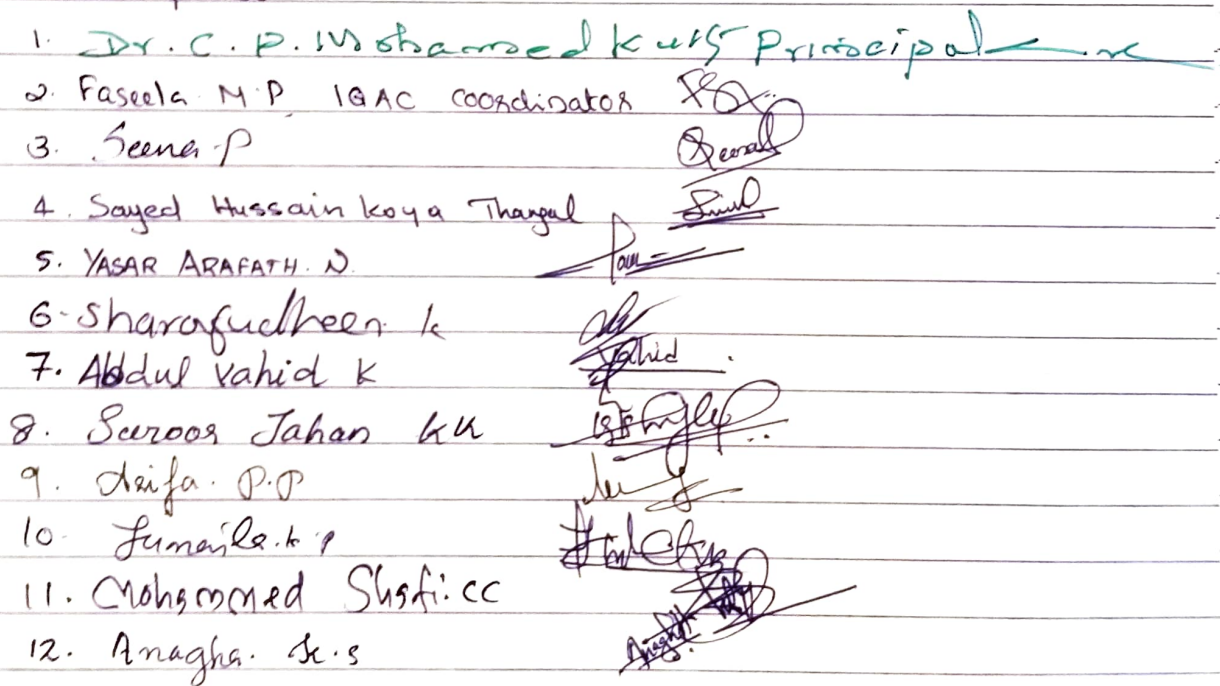 1. Dr. C. P. Mohamed Kutty Principal
2. Faseela M.P IQAC Coordinator
3. Seena P
4. Sayed Hussain Koya Thangal
5. YASAR ARAFATH. N
6. Sharafudheen k
7. Abdul Vahid K Vahid
8. Suroor Jahan KK
9. P.P
10. Jumaila. k p
11. Mohammed Shafi. CC
12. Anagha. K.S